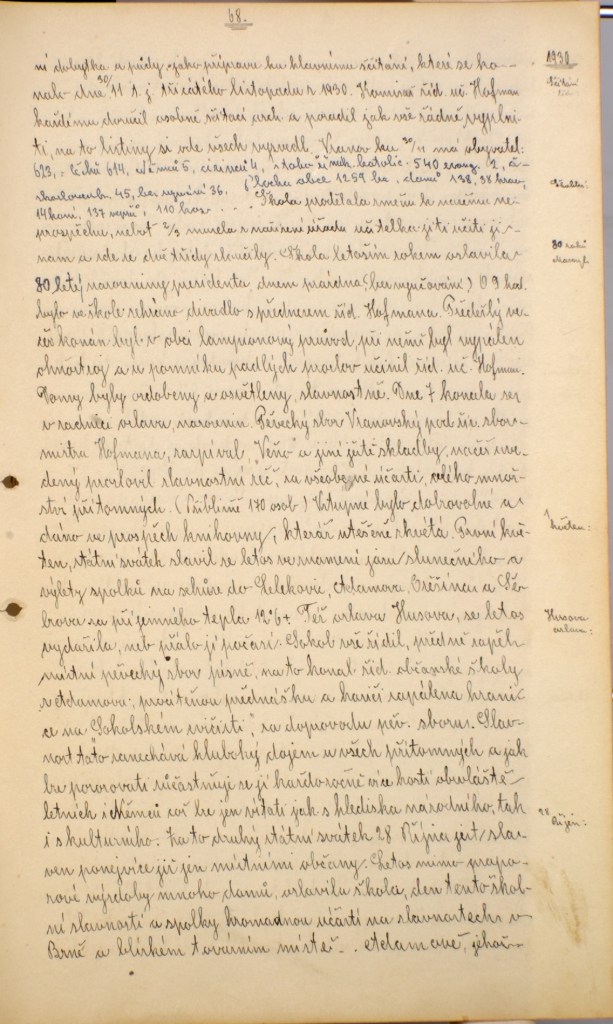 68.
1930
ní dobytka a půdy jako příprava ku hlavnímu sčítání, které se ko-
nalo dne 30/11 t. j. třicátého listopadu r 1930. Komisař říd. uč. Hofman
každému doručil osobně sčítací arch a poradil jak vše řádně vyplni-
ti, na to listiny si ode všech vyzvedl. Vranov ku 30/11 má obyvatel:
623, čechů 614, němců 5, cizinců 4, z toho římsk. katolic. 540 evang. 2, č.
choslovensk. 45, bez vyznání 36. Plocha obce 1259 ha, domů 138, 38 krav,
14 koní, 137 vepřů, 110 koz. Škola prodělala změnu k našemu ne-
prospěchu, neboť musela z nařízení úřadu učitelka jíti učiti ji-
nam a zde se dvě třídy sloučily. Škola letošním rokem oslavila
80 leté narozeniny presidenta, dnem prázdna (bez vyučování) O 9 hod.
bylo ve škole sehráno divadlo s přednesem říd. Hofmana. Předešlý ve-
čer konán byl v obci lampionový průvod, při němž byl vypálen
ohňostroj a u pomníku padlých proslov učinil říd. uč. Hofman.
Domy byly ozdobeny a osvětleny slavnostně. Dne 7 konala se
v radnici oslava narozenin. Pěvecký sbor Vranovský pod říz. sbor-
mistra Hofmana, zazpíval "Věno" a jiné jeté skladby, načež uve-
dený proslovil slavnostní řeč, za všeobecné účasti, množ-
ství přítomných. (Přibližně 170 osob) Vstupné bylo dobrovolné a
dáno ve prospěch knihovny, kteráž utěšeně zkvétá. První kvě-
ten, státní svátek slavil se letos ve znamení jasu slunečního a
výlety spolků na schůze do Lelekovic, Adamova, Ořešína a Še-
brova za příjemného tepla 12°6+. Též oslava Husova, se letos
vydařila, neb přálo jí počasí. Sokol vše řídil, předně zapěl
místní pěvecký sbor písně, na to konal říd. občanské školy
z Adamova, procítěnou přednášku a končí zapálena hrani-
ce na "Sokolském cvičišti", za doprovodu pěv. sboru. Slav-
nost tato zanechává hluboký dojem u všech přítomných a jak
lze pozorovati zúčastňuje se jí každoročně více hostí obzvláště
letních i Němců což lze jen vítati jak s hlediska národního, tak
i s kulturního. Za to druhý státní svátek 28 Října jest sla-
ven ponejvíce již jen místními občany. Letos mimo prapo-
rové výzdoby mnoho domů, oslavila škola, den tento škol-
ní slavností a spolky hromadnou účastí na slavnostech v
Brně a blízkém továrním místě - Adamově, jehož-
Sčítání
Škola:
80 roků
Masaryk
1 květen:
Husova
oslava:
28 Říjen: